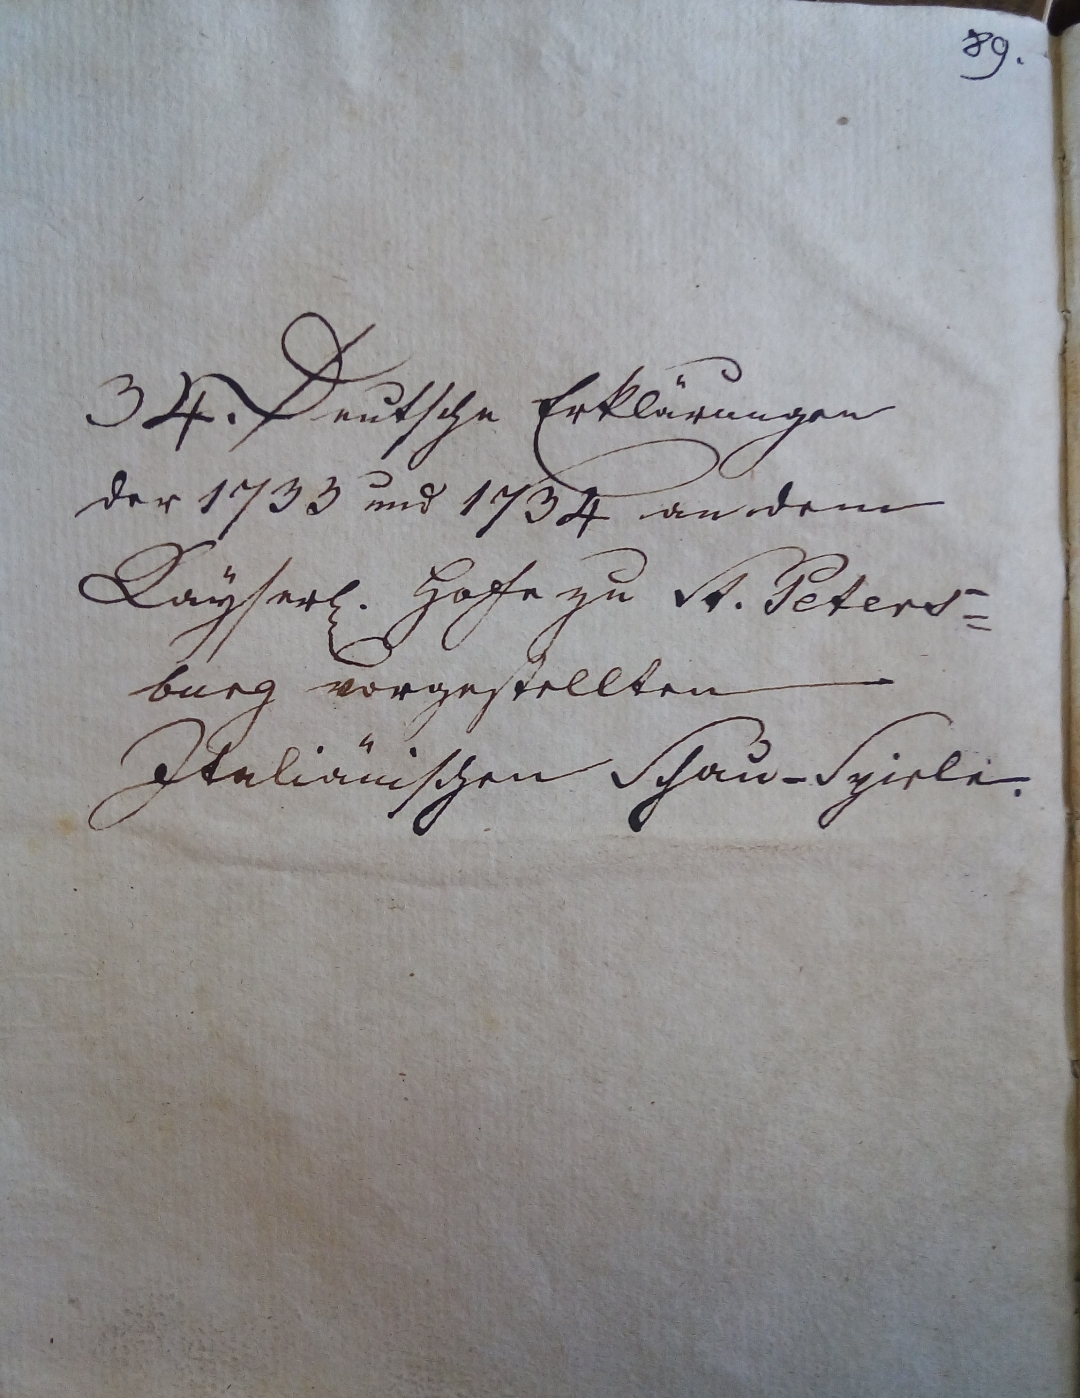 89.
34. Deutsche Erklärungen
der 1733 und 1734 an dem
Kaÿserl. Hofe zu St. Peters=
burg vorgestellten
Italiänischen Schau-Spiele.